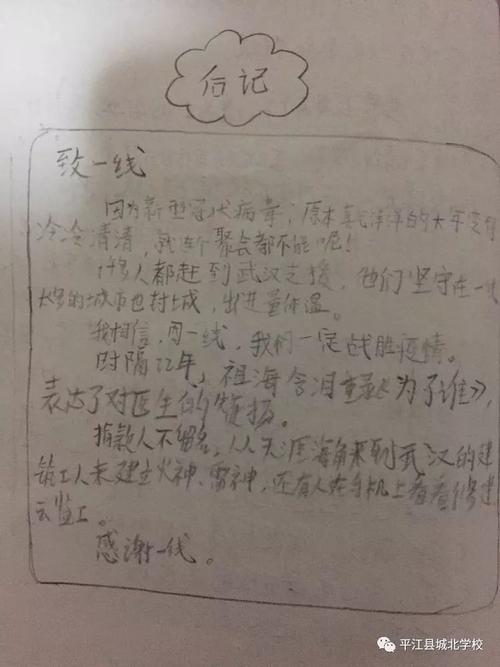 后记
致一线
因为新型冠状病毒，原本喜气洋洋的大年变得
冷冷清清，就连个聚会都不能呢！
许多人都赶到武汉支援，他们坚守在一线
大多的城市也封城，出进量体温。
我相信，同一线，我们一定战胜疫情。
时隔22年，祖海含泪重录《为了谁》，
表达了对医生的赞扬。
捐款人不留名，从天涯海角来到武汉的建
筑工人来建立火神、雷神，还有人在手机上看着修建
云监工。
感谢一线。
平江县城北学校